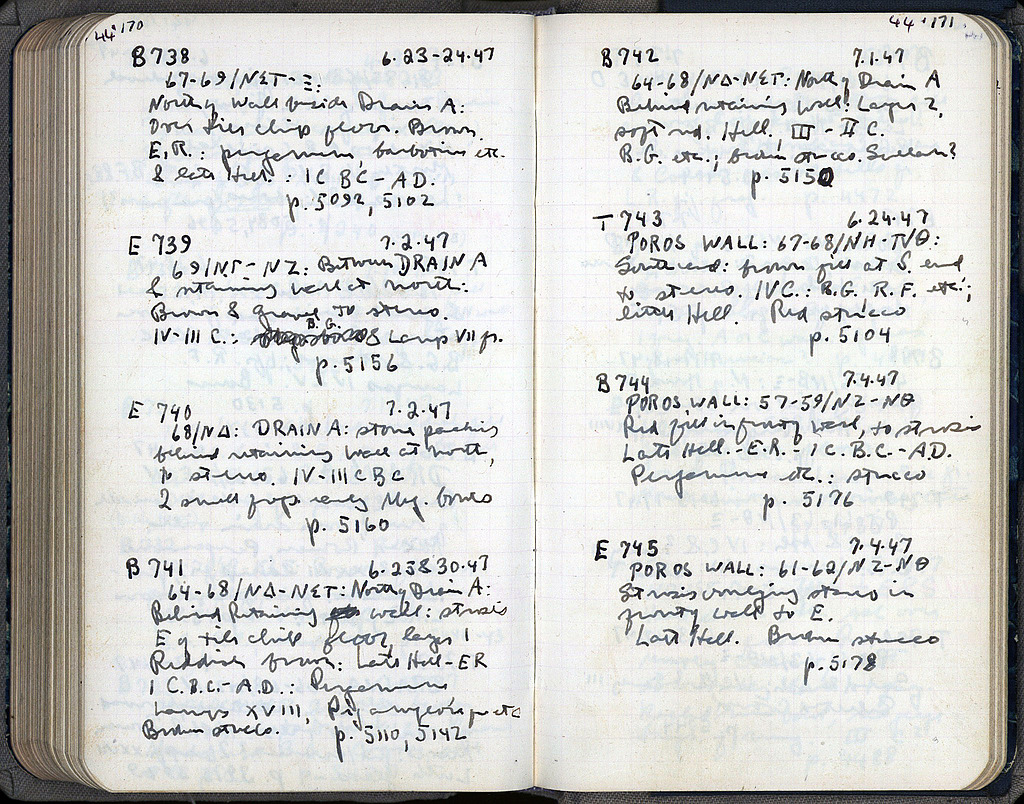 44' 170
B 738 6.23-24.47
67-69/ΝΣΤ-Ξ:
North of Wall beside Drain A:
Over tiles chip floor. Brown.
E.R.: pergamene, barbotine etc.
& late Hell. · 1 C BC-AD.
p. 5092, 5102
E 739 7.2.47
69/ΝΓ-ΝΖ: Between DRAIN A
& retaining wall at north:
Brown & gravel to stereo.
IV-III C.: B.G. & Lamp VII fr.
p. 5156
E 740 7.2.47
68/ΝΔ: DRAIN A: stone packing
behind retaining wall at north,
to stereo. IV-III C BC
2 small frags early Meg. bowls
p. 5160
B 741 6.23&30.47
64-68/ΝΔ-ΝΣΤ: North of Drain A:
Behind Retaining wall: strosis
E of tile chip floor, layer 1
Reddish brown: Late Hell-ER
1 C.B.C.-A.D.: Pergamene
Lamps XVIII, etc
Broken stucco. p. 5110, 5142
44' 171
B 742 7.1.47
64-68/ΝΔ-ΝΣΤ: North of Drain A
Behind retaining wall: Layer 2,
soft red. Hell. III-II C.
B.G. etc.; broken stucco. Sullan?
p. 5150
T 743 6.24.47
POROS WALL: 67-68/ΝΗ-ΤΝΘ:
South end: brown fill at S. end
to stereo. IV C.: B.G. R.F. etc.;
either Hell. Red stucco
p. 5104
B 744 7.4.47
POROS WALL: 57-59/ΝΖ-ΝΘ
Red fill in front of wall, to strosis
Late Hell.-E.R. 1 C. B.C.-A.D.
Pergamene etc.: stucco
p. 5176
E 745 7.4.47
POROS WALL: 61-62/ΝΖ-ΝΘ
Strosis overlying stereo in
front of wall to E.
Late Hell. Broken stucco
p. 5178